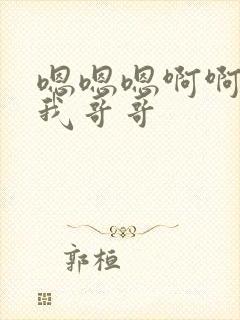 嗯嗯嗯啊啊
我哥哥
郭桓